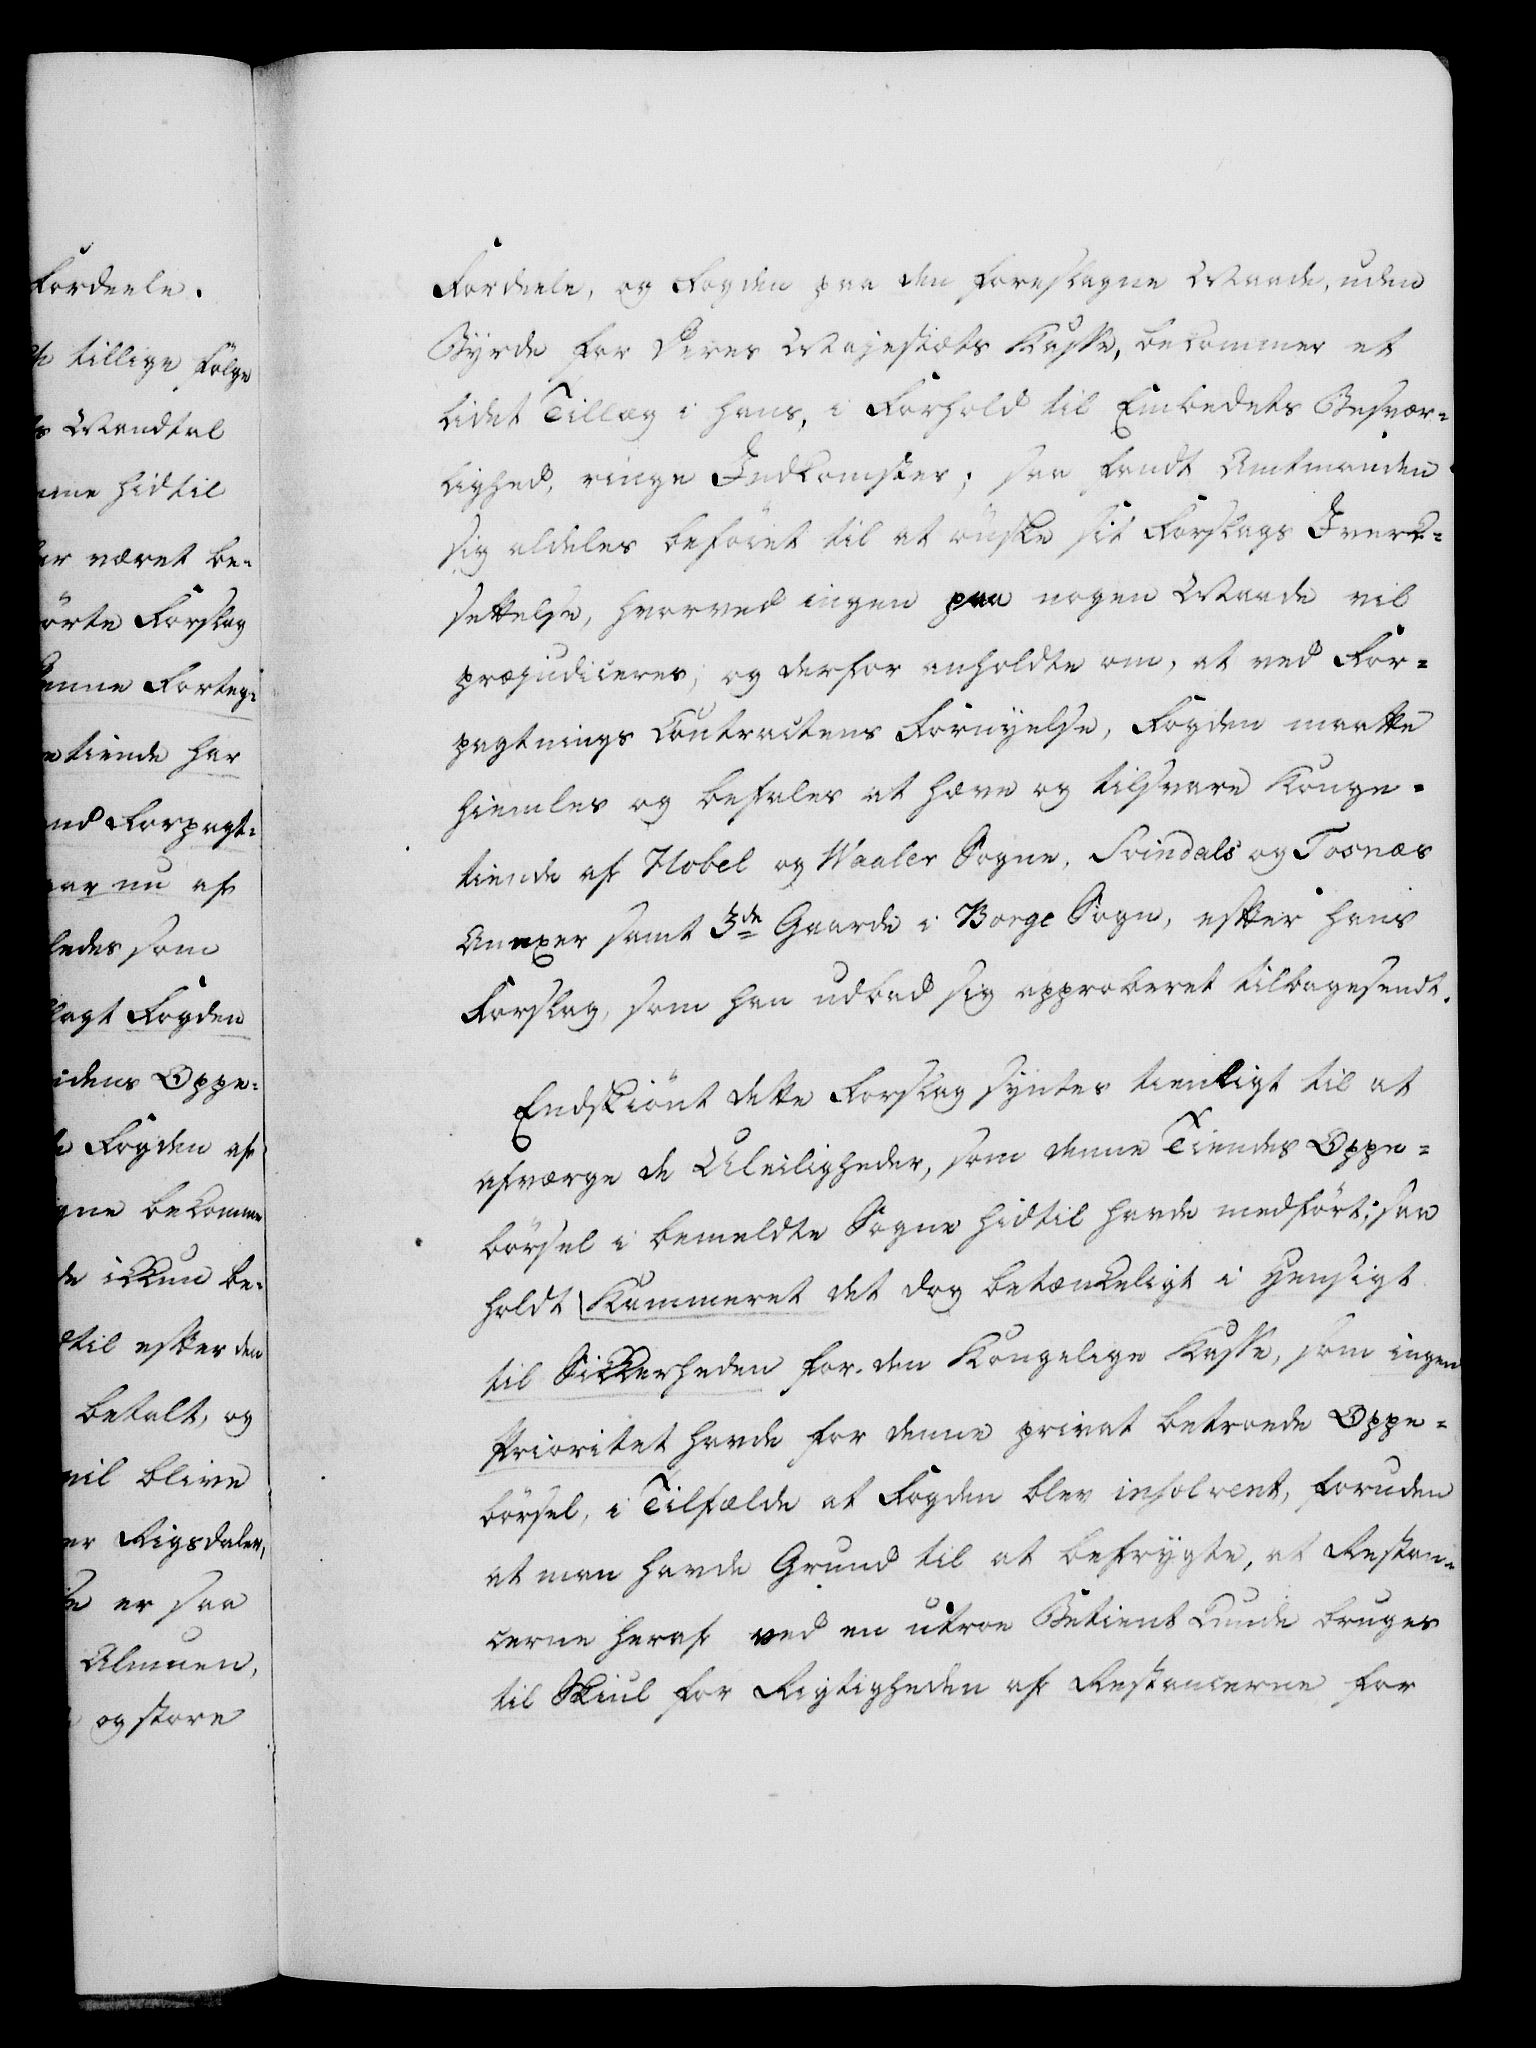 Fordeele.
tillige følge
Mandtal
hidtil
været be-
ørte Forslag
denne Forteg-
tiende har
Forpagt-
nu af
ledes som
lagt Fogden
Oppe-
Fogden af
bekomme
ikkun be-
efter den
betalt, og
vil blive
Rigsdaler,
er saa
Almuen,
og store
Fordeele, og Fogden paa den foreslagne Maade, uden
Byrde for Deres Majestæts Kasse, bekommer et
lidet Tillæg i hans, i Forhold til Embedets Besvær-
lighed, ringe Indkomster; saa fandt Amtmanden
sig aldeles beføiet til at ønske sit Forslags Iverk-
settelse, hvorved ingen paa nogen Maade vil
præjudiceres, og derfor anholdte om, at ved For-
pagtnings Contractens Fornyelse, Fogden maatte
hiemles og befales at hæve og tilsvare Konge-
tiende af Hobel og Waaler Sogne, Svindals og Tosnæs
Annexer samt 3de Gaarde i Borge Sogn, efter hans
Forslag, som han udbad sig approberet tilbagesendt.
Endskiønt dette Forslag syntes tienligt til at
afværge de Uleiligheder, som denne Tiendes Oppe-
børsel i bemeldte Sogne hidtil havde medført; saa
holdt Kammeret det dog betænkeligt i Hensigt
til Sikkerheden for den Kongelige Kasse, som ingen
Prioritet havde for denne privat betroede Oppe-
børsel, i Tilfælde at Fogden blev insolvent, foruden
at man havde Grund til at befrygte, at Restan-
cerne heraf ved en utroe Betient kunde bruges
til Skiul for Rigtigheden af Restancerne for